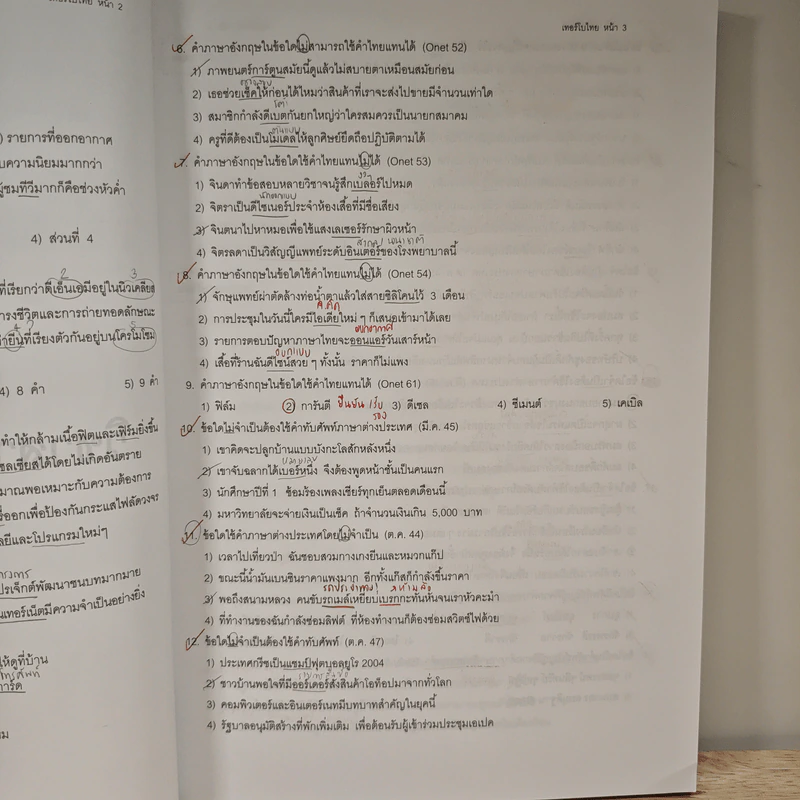 หน้า 2
เทอร์โบไทย หน้า 3
) รายการที่ออกอากาศ
บความนิยมมากกว่า
ผู้ชมทีวีมากก็คือช่วงหัวค่ำ
4) ส่วนที่ 4
2 3
ที่เรียกว่าดีเอ็นเอมีอยู่ในนิวเคลียส
ารงชีวิตและการถ่ายทอดลักษณะ
ยีนที่เรียงตัวกันอยู่บนโครโมโซม
4) 8 คำ 5) 9 คำ
ทำให้กล้ามเนื้อฟิตและเฟิร์มยิ่งขึ้น
ซลเซียสได้โดยไม่เกิดอันตราย
มาณพอเหมาะกับความต้องการ
ออกเพื่อป้องกันกระแสไฟลัดวงจร
ลยีและโปรแกรมใหม่ๆ
โครงการ
ปรเจ็กต์พัฒนาชนบทมากมาย
นเทอร์เน็ตมีความจำเป็นอย่างยิ่ง
ให้ดูที่บ้าน
การ์ด
6. คำภาษาอังกฤษในข้อใดไม่สามารถใช้คำไทยแทนได้ (Onet 52)
1) ภาพยนตร์การ์ตูนสมัยนี้ดูแล้วไม่สบายตาเหมือนสมัยก่อน
ตรวจสอบ
2) เธอช่วยเช็คให้ก่อนได้ไหมว่าสินค้าที่เราจะส่งไปขายมีจำนวนเท่าใด
3) สมาชิกกำลังดีเบตกันยกใหญ่ว่าใครสมควรเป็นนายกสมาคม
ต้นแบบ
4) ครูที่ดีต้องเป็นโมเดลให้ลูกศิษย์ยึดถือปฏิบัติตามได้
7. คำภาษาอังกฤษในข้อใดใช้คำไทยแทนไม่ได้ (Onet 53)
1) จินดาทำข้อสอบหลายวิชาจนรู้สึกเบลอร์ไปหมด
นักออกแบบ
2) จิตราเป็นดีไซเนอร์ประจำห้องเสื้อที่มีชื่อเสียง
3) จินตนาไปหาหมอเพื่อใช้แสงเลเซอร์รักษาผิวหน้า
สากล/นานาชาติ
4) จิตรลดาเป็นวิสัญญีแพทย์ระดับอินเตอร์ของโรงพยาบาลนี้
8. คำภาษาอังกฤษในข้อใดใช้คำไทยแทนไม่ได้ (Onet 54)
1) จักษุแพทย์ผ่าตัดล้างท่อน้ำตาแล้วใส่สายซิลิโคนไว้ 3 เดือน
2) การประชุมในวันนี้ใครมีไอเดียใหม่ ๆ ก็เสนอเข้ามาได้เลย
ออกอากาศ
3) รายการตอบปัญหาภาษาไทยจะออนแอร์วันเสาร์หน้า
ออกแบบ
4) เสื้อที่ร้านฉันดีไซน์สวย ๆ ทั้งนั้น ราคาก็ไม่แพง
9. คำภาษาอังกฤษในข้อใดใช้คำไทยแทนได้ (Onet 61)
1) ฟิล์ม 2 การันตี ยืนยัน/รับรอง 3) ดีเซล 4) ซีเมนต์ 5) เคเบิล
10. ข้อใดไม่จำเป็นต้องใช้คำทับศัพท์ภาษาต่างประเทศ (มี.ค. 45)
1) เขาคิดจะปลูกบ้านแบบบังกะโลสักหลังหนึ่ง
หมายเลข
2) เขาจับฉลากได้เบอร์หนึ่ง จึงต้องพูดหน้าชั้นเป็นคนแรก
3) นักศึกษาปีที่ 1 ซ้อมร้องเพลงเชียร์ทุกเย็นตลอดเดือนนี้
4) มหาวิทยาลัยจะจ่ายเงินเป็นเช็ค ถ้าจำนวนเงินเกิน 5,000 บาท
11. ข้อใดใช้คำภาษาต่างประเทศโดยไม่จำเป็น (ต.ค. 44)
1) เวลาไปเที่ยวป่า ฉันชอบสวมกางเกงยีนและหมวกแก๊ป
2) ขณะนี้น้ำมันเบนซินราคาแพงมาก อีกทั้งแก๊สก็กำลังขึ้นราคา
รถประจำทาง ห้ามล้อ
3) พอถึงสนามหลวง คนขับรถเมล์เหยียบเบรกกะทันหันจนเราหัวคะมำ
4) ที่ทำงานของฉันกำลังซ่อมลิฟต์ ที่ห้องทำงานก็ต้องซ่อมสวิตช์ไฟด้วย
12. ข้อใดไม่จำเป็นต้องใช้คำทับศัพท์ (ต.ค. 47)
1) ประเทศกรีซเป็นแชมป์ฟุตบอลยูโร 2004
2) ชาวบ้านพอใจที่มีออร์เดอร์สั่งสินค้าโอท็อปมาจากทั่วโลก
3) คอมพิวเตอร์และอินเตอร์เนทมีบทบาทสำคัญในยุคนี้
4) รัฐบาลอนุมัติสร้างที่พักเพิ่มเติม เพื่อต้อนรับผู้เข้าร่วมประชุมเอเปค